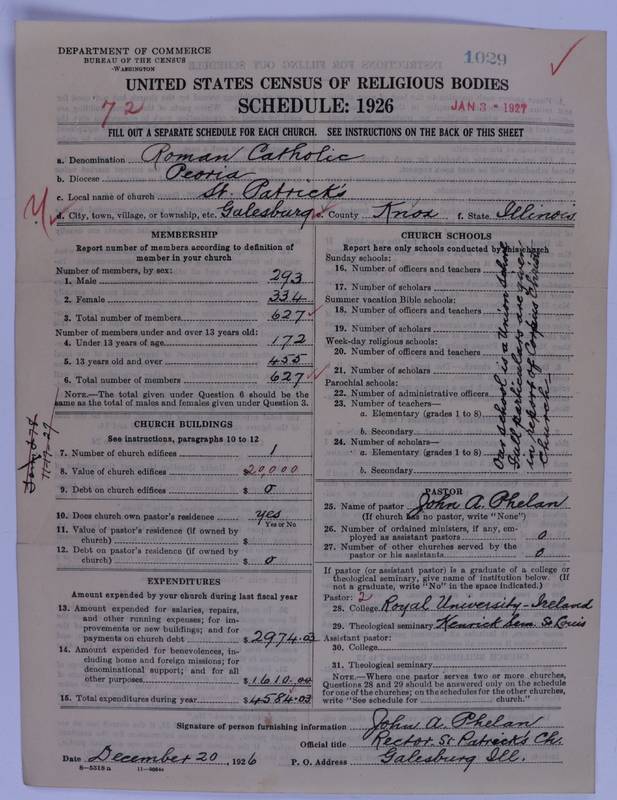 DEPARTMENT OF COMMERCE
BUREAU OF THE CENSUS
WASHINGTON
1029
UNITED STATES CENSUS OF RELIGIOUS BODIES
72
SCHEDULE: 1926
JAN 3 - 1927
FILL OUT A SEPARATE SCHEDULE FOR EACH CHURCH. SEE INSTRUCTIONS ON THE BACK OF THIS SHEET
a. Denomination Roman Catholic
b. Diocese Peoria
c. Local name of church St. Patrick's
d. City, town, village, or township, etc. Galesburg e. County Knox f. State Illinois
MEMBERSHIP
Report number of members according to definition of member in your church
Number of members, by sex:
1. Male 293
2. Female 334
3. Total number of members 627
Number of members under and over 13 years old:
4. Under 13 years of age 172
5. 13 years old and over 455
6. Total number of members 627
NOTE.—The total given under Question 6 should be the
same as the total of males and females given under Question 3.
CHURCH BUILDINGS
See instructions, paragraphs 10 to 12
7. Number of church edifices 1
8. Value of church edifices $20,000
9. Debt on church edifices $ 0
10. Does church own pastor's residence yes
Yes or No
11. Value of pastor's residence (if owned by
church) $
12. Debt on pastor's residence (if owned by
church) $ 0
EXPENDITURES
Amount expended by your church during last fiscal year
13. Amount expended for salaries, repairs,
and other running expenses; for im-
provements or new buildings; and for
payments on church debt $ 2974.03
14. Amount expended for benevolences, in-
cluding home and foreign missions; for
denominational support; and for all
other purposes $ 1610.00
15. Total expenditures during year $ 4584.03
CHURCH SCHOOLS
Report here only schools conducted by this church
Sunday schools:
16. Number of officers and teachers
17. Number of scholars
Summer vacation Bible schools:
18. Number of officers and teachers
19. Number of scholars
Week-day religious schools:
20. Number of officers and teachers
21. Number of scholars
Parochial schools:
22. Number of administrative officers
23. Number of teachers—
a. Elementary (grades 1 to 8)
b. Secondary
24. Number of scholars—
a. Elementary (grades 1 to 8)
b. Secondary
Our school is a Union School
Full particulars are given
in report of Corpus Christi
Church—
PASTOR
25. Name of pastor John A. Phelan
(If church has no pastor, write "None")
26. Number of ordained ministers, if any, em-
ployed as assistant pastors 0
27. Number of other churches served by the
pastor or his assistants 0
If pastor (or assistant pastor) is a graduate of a college or
theological seminary, give name of institution below. (If
not a graduate, write "No" in the space indicated.)
Pastor: 2
28. College Royal University-Ireland
29. Theological seminary Kenrick Sem. St Louis
Assistant pastor:
30. College
31. Theological seminary
NOTE.—Where one pastor serves two or more churches,
Questions 28 and 29 should be answered only on the schedule
for one of the churches; on the schedules for the other churches,
write "See schedule for church."
Signature of person furnishing information John A. Phelan
Official title Rector St Patrick's Ch.
Date December 20, 1926 P. O. Address Galesburg Ill.
8—5518 a